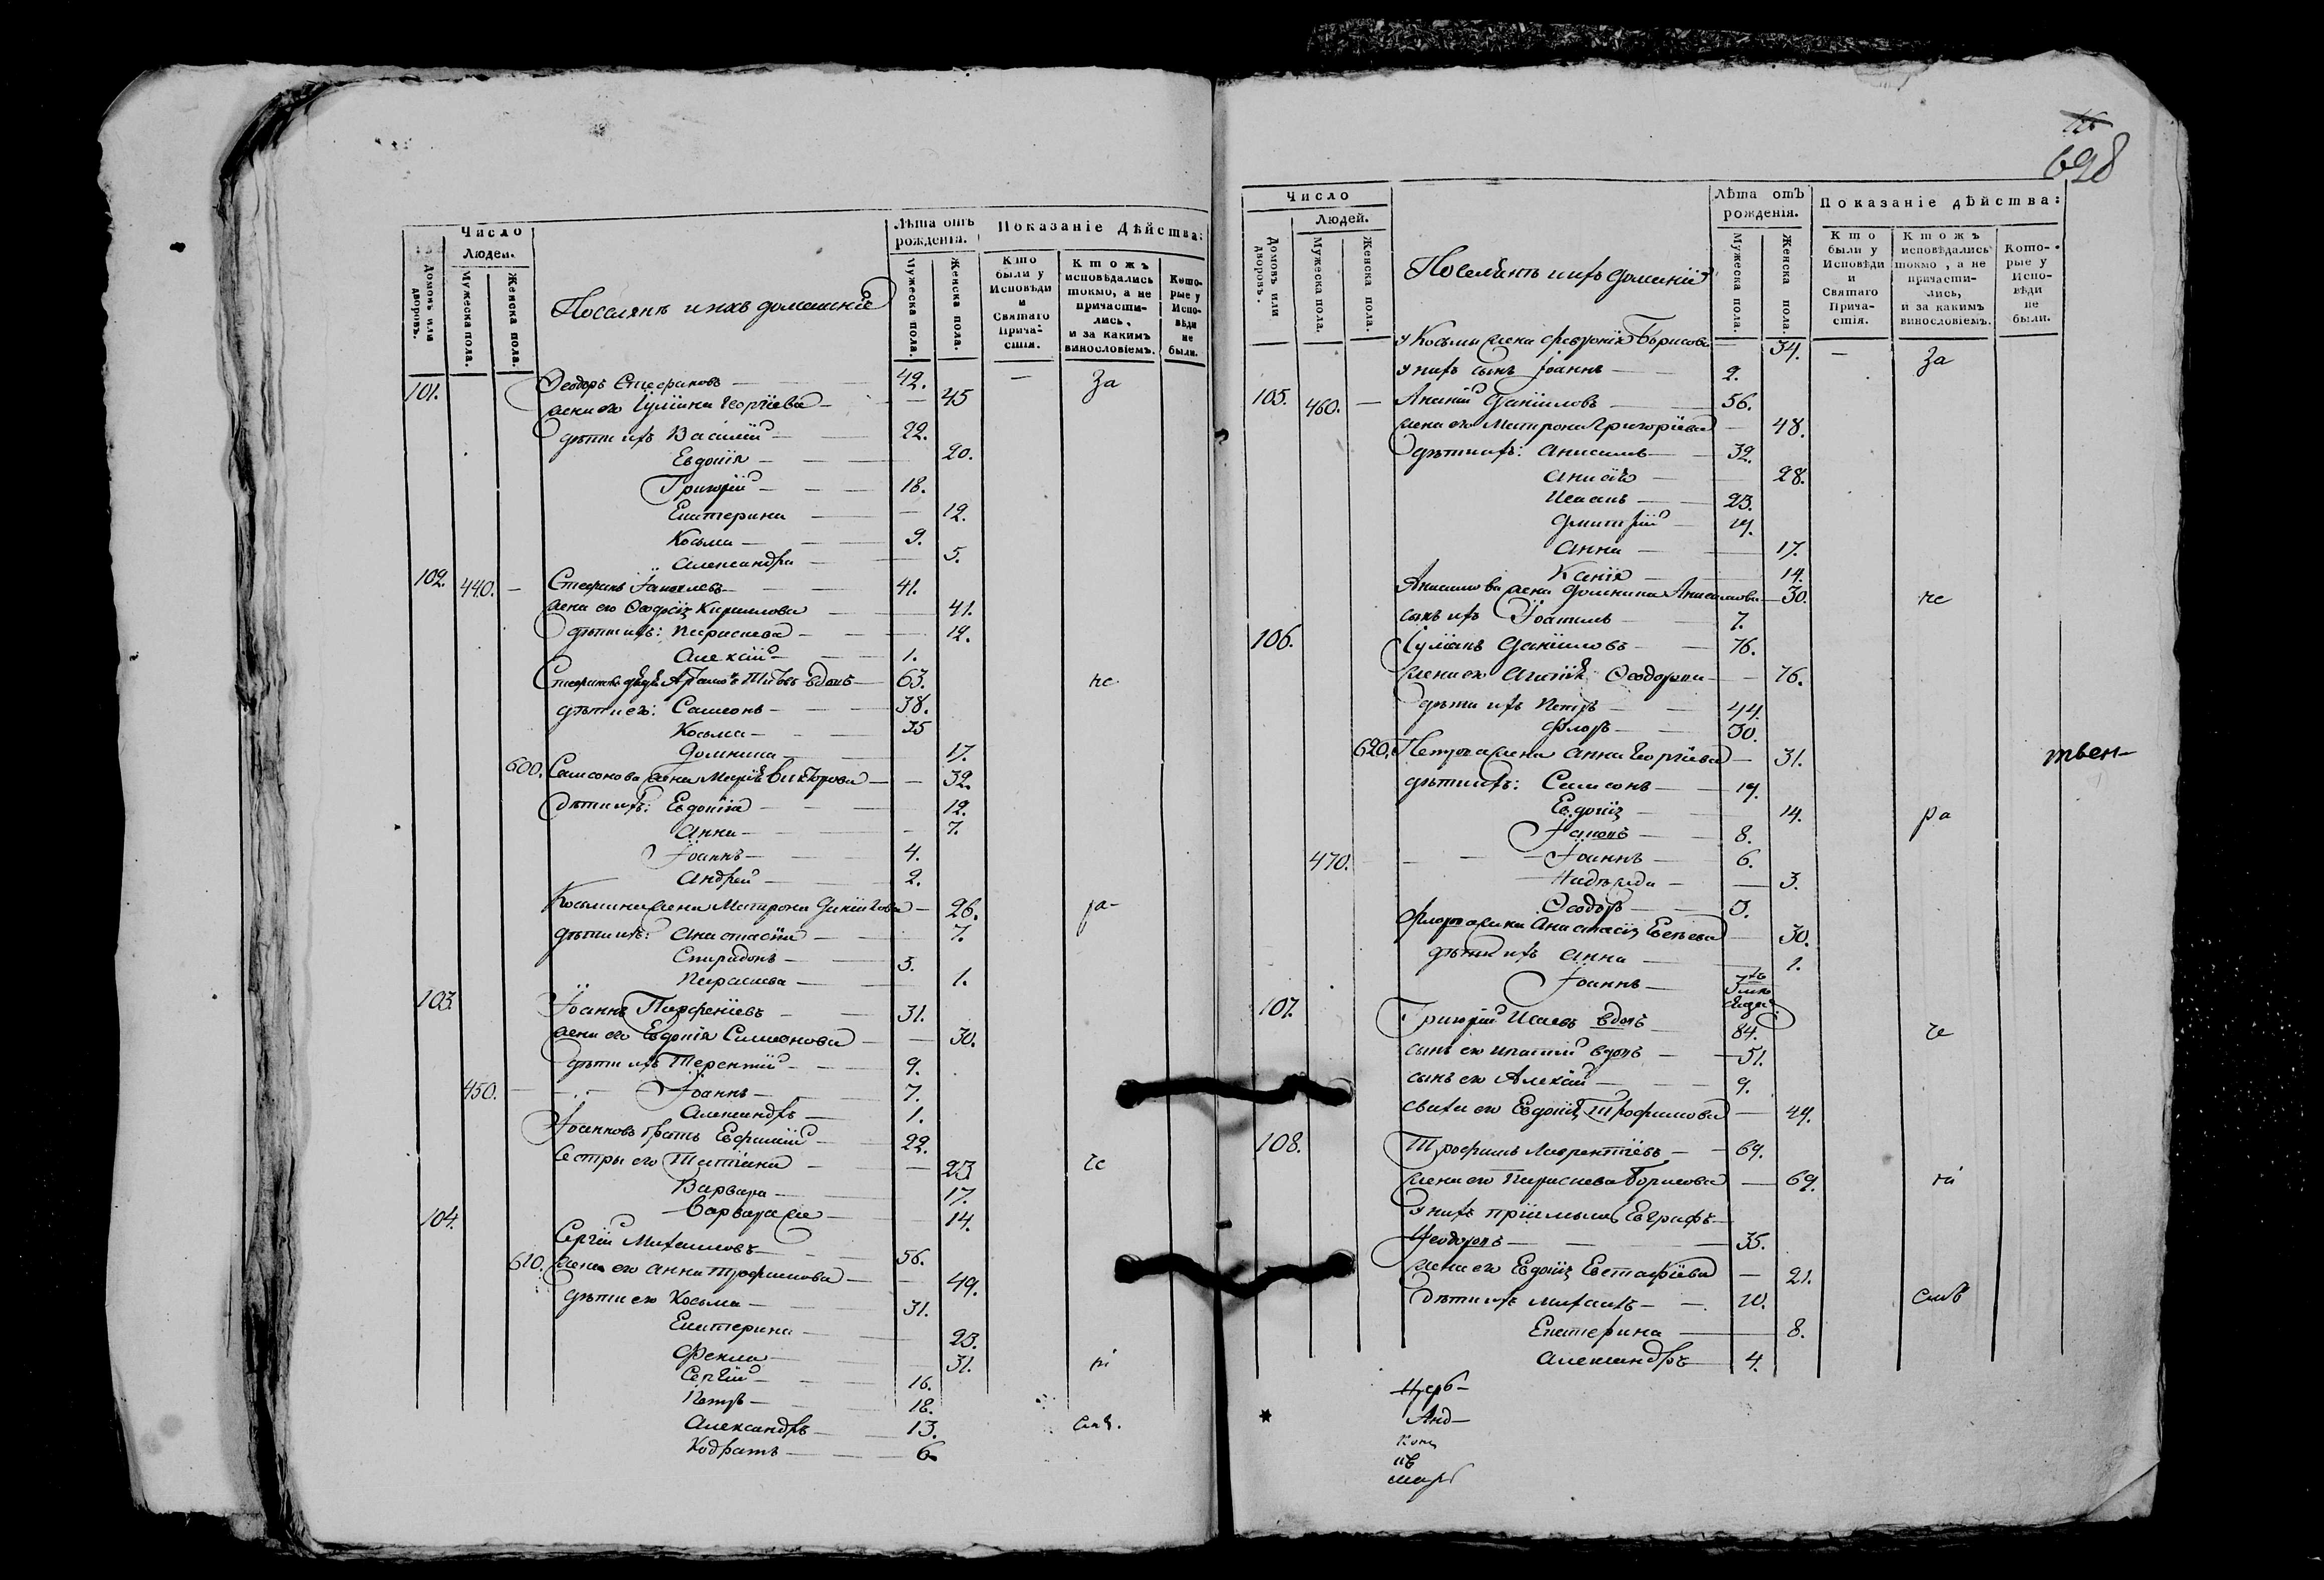 Число
Людей.
Домовъ или дворовъ.
Мужеска пола.
Женска пола.
Поселянъ и ихъ домашнiе
Лѣта отъ рожденiя.
Мужеска пола.
Женска пола.
Показанiе дѣйства:
Кто были у Исповѣди и Святаго Прича-стiя.
Ктожъ исповѣдались токмо, а не причасти-лись, и за какимъ винословiемъ.
Кото-рые у Испо-вѣди не были.
101. Ѳеодоръ Стефановъ — 42. — За
жена его Iулiана Георгiева — 45
дѣти ихъ Василiй — 22.
Евдокiя — 20.
Григорiй — 18.
Екатерина — 12.
Косьма — 9.
Александра — 5.
102. 440. — Стефанъ — 41.
жена его Ѳеодосiя Кириллова — 41.
дѣти ихъ: Параскева — 12.
Алексiй — 1.
Титовъ вдовъ — 63. не
дѣти его: Самсонъ — 38.
Косьма — 35
Домника — 17.
600. Самсонова жена Марiя Викторова — 32.
дѣти ихъ: Евдокiя — 12.
Анна — 7.
Iоаннъ — 4.
Андрей — 2.
Косьмина жена Матрона — 26. ра-
дѣти ихъ: Анастасiя — 7.
Спиридонъ — 3.
Параскева — 1.
103. Iоаннъ Парфенiевъ — 31.
жена его Евдокiя Симеонова — 30.
дѣти ихъ Терентiй — 9.
450. — Iоаннъ — 7.
Александръ — 1.
Iоанновъ братъ Евфимiй — 22.
Сестры его Татiана — 23 че
Варвара — 17.
Варвара же — 14.
104. Сергiй Михаиловъ — 56.
610. жена его Анна Трофимова — 49.
дѣти его Косьма — 31.
Екатерина — 23.
Фекла — 31. нi
Сергiй — 16.
Петръ — 18.
Александръ — 13.
Кодратъ — 6.
698
Число
Людей.
Домовъ или дворовъ.
Мужеска пола.
Женска пола.
Поселянъ и ихъ домашнiе
Лѣта отъ рожденiя.
Мужеска пола.
Женска пола.
Показанiе дѣйства:
Кто были у Исповѣди и Святаго Прича-стiя.
Ктожъ исповѣдались токмо, а не причасти-лись, и за какимъ винословiемъ.
Кото-рые у Испо-вѣди не были.
у Косьмы жена Февронiя Борисова — 34. — За
у нихъ сынъ Iоаннъ — 2.
105. 460. — Ананiй Данiиловъ — 56.
жена его Матрона Григорiева — 48.
дѣти ихъ: Анисимъ — 32.
— 28.
Исаакъ — 23.
Дмитрiй — 19.
Анна — 17.
Ксенiя — 14.
Анисимова жена Домникiа Анисимова — 30. не
сынъ ихъ — 7.
106. Iулiанъ Данiиловъ — 76.
жена его Агапiя Ѳеодорова — 76.
дѣти ихъ Петръ — 44.
Флоръ — 30.
620. Петрова жена Анна Георгiева — 31. твен-
дѣти ихъ: Самсонъ — 19.
Евдокiя — 14. ра
— 8.
470. — Iоаннъ — 6.
Надежда — 3.
Ѳеодоръ — 3.
Флорова жена Анастасiя — 30.
дѣти ихъ Анна — 1.
Iоаннъ —
107. Григорiй Исаевъ вдовъ — 84. че
сынъ его Ипатiй вдовъ — 51.
сынъ его Алексiй — 9.
сваха его Евдокiя Трофимова — 49.
108. Трофимъ Лаврентiевъ — 69.
жена его Параскева Борисова — 69. нi
у нихъ прiемышъ Евграфъ
Ѳеодоровъ — 35.
жена его Евдокiя Евстафiева — 21.
дѣти ихъ Михаилъ — 10.
Екатерина — 8.
Александръ — 4.
Церб-
Анд-